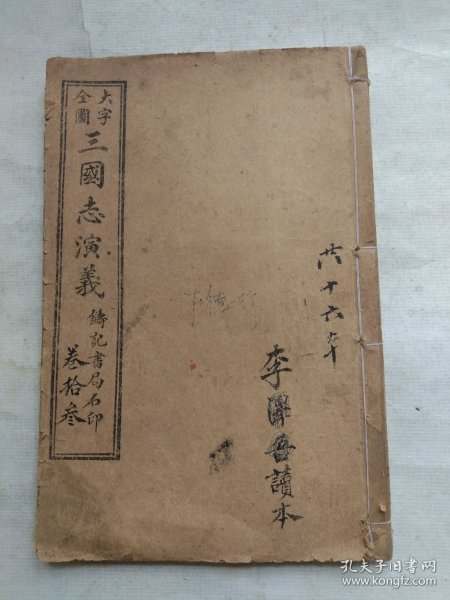 大字
全圖
三國志演義
鑄記書局石印
卷拾叁
共十六本
李澤春讀本
孔夫子旧书网
www.kongfz.com